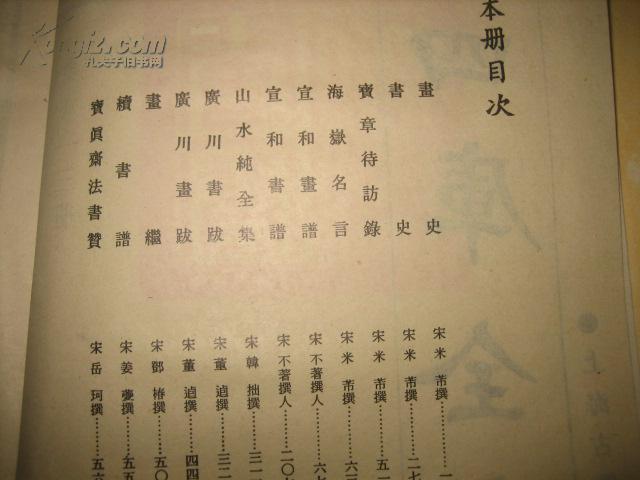 本册目次
畫史 宋米芾撰………一
書史 宋米芾撰………二七
寶章待訪錄 宋米芾撰………五一
海嶽名言 宋米芾撰………六三
宣和畫譜 宋不著撰人………六七
宣和書譜 宋不著撰人………二〇
山水純全集 宋韓拙撰………三一
廣川書跋 宋董逌撰………三二
廣川畫跋 宋董逌撰………四四
畫繼 宋鄧椿撰………五〇
續書譜 宋姜夔撰………五五
寶眞齋法書贊 宋岳珂撰………五六
Kongfz.com
孔夫子旧书网